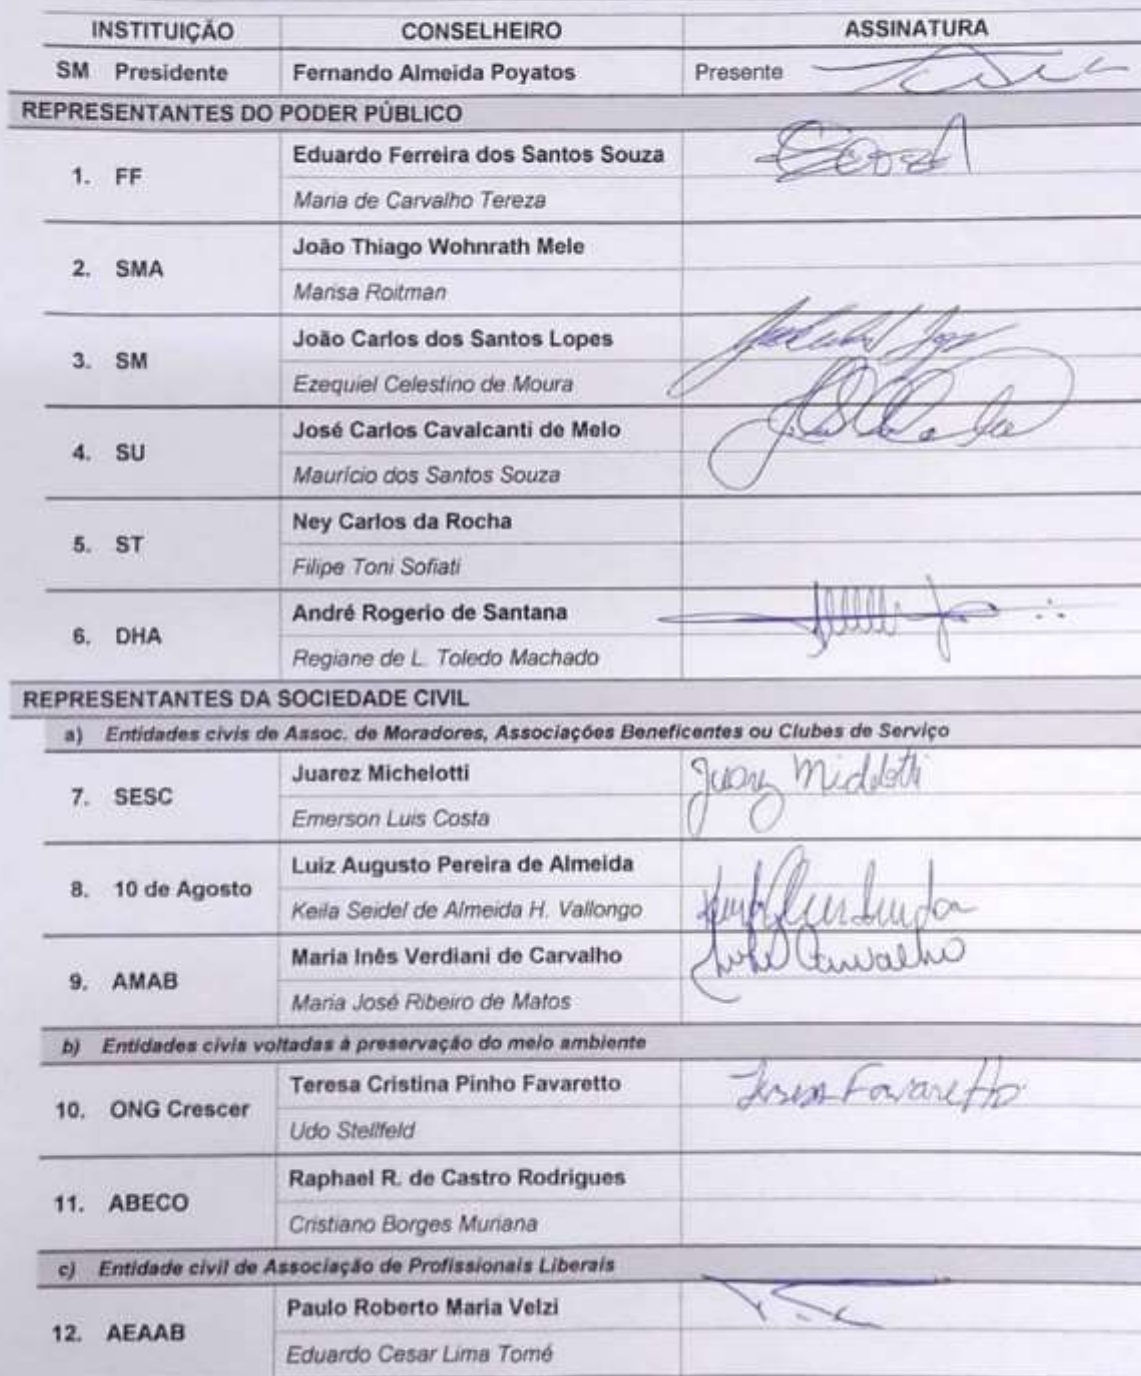 INSTITUIÇÃO CONSELHEIRO ASSINATURA
SM Presidente Fernando Almeida Poyatos Presente
REPRESENTANTES DO PODER PÚBLICO
1. FF Eduardo Ferreira dos Santos Souza
Maria de Carvalho Tereza
2. SMA João Thiago Wohnrath Mele
Marisa Roitman
3. SM João Carlos dos Santos Lopes
Ezequiel Celestino de Moura
4. SU José Carlos Cavalcanti de Melo
Maurício dos Santos Souza
5. ST Ney Carlos da Rocha
Filipe Toni Sofiati
6. DHA André Rogerio de Santana
Regiane de L. Toledo Machado
REPRESENTANTES DA SOCIEDADE CIVIL
a) Entidades civis de Assoc. de Moradores, Associações Beneficentes ou Clubes de Serviço
7. SESC Juarez Michelotti Juarez Michelotti
Emerson Luis Costa
8. 10 de Agosto Luiz Augusto Pereira de Almeida
Keila Seidel de Almeida H. Vallongo
9. AMAB Maria Inês Verdiani de Carvalho Carvalho
Maria José Ribeiro de Matos
b) Entidades civis voltadas à preservação do meio ambiente
10. ONG Crescer Teresa Cristina Pinho Favaretto Teresa Favaretto
Udo Stellfeld
11. ABECO Raphael R. de Castro Rodrigues
Cristiano Borges Muriana
c) Entidade civil de Associação de Profissionais Liberais
12. AEAAB Paulo Roberto Maria Velzi
Eduardo Cesar Lima Tomé